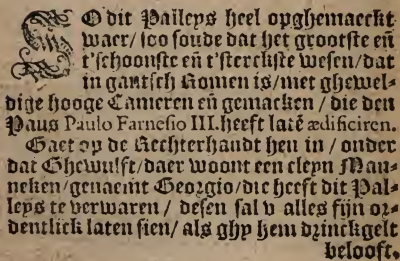 SO dit Palleys heel opghemaeckt
waer/ soo soude dat het grootste eñ
t'schoonste eñ t'sterckste wesen/dat
in gantsch Romen is/met ghewel-
dige hooge Cameren eñ gemacken / die den
Paus Paulo Farnesio III. heeft latẽ ædificiren.
Gaet op de Rechterhandt hen in / onder
dat Ghewulft/daer woont een cleyn Man-
neken/genaemt Georgio/die heeft dit Pal-
leys te verwaren / desen sal v alles sijn or-
dentlick laten sien/ als ghy hem drinckgelt
belooft.